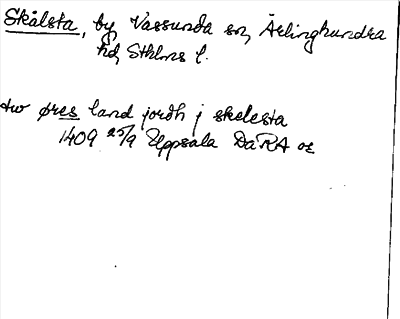 Skålsta, by, Vassunda sn, Ärlinghundra
hd, Sthlms l.
tw øres land jordh j skelesta
1409 25/9 Uppsala DaRA or